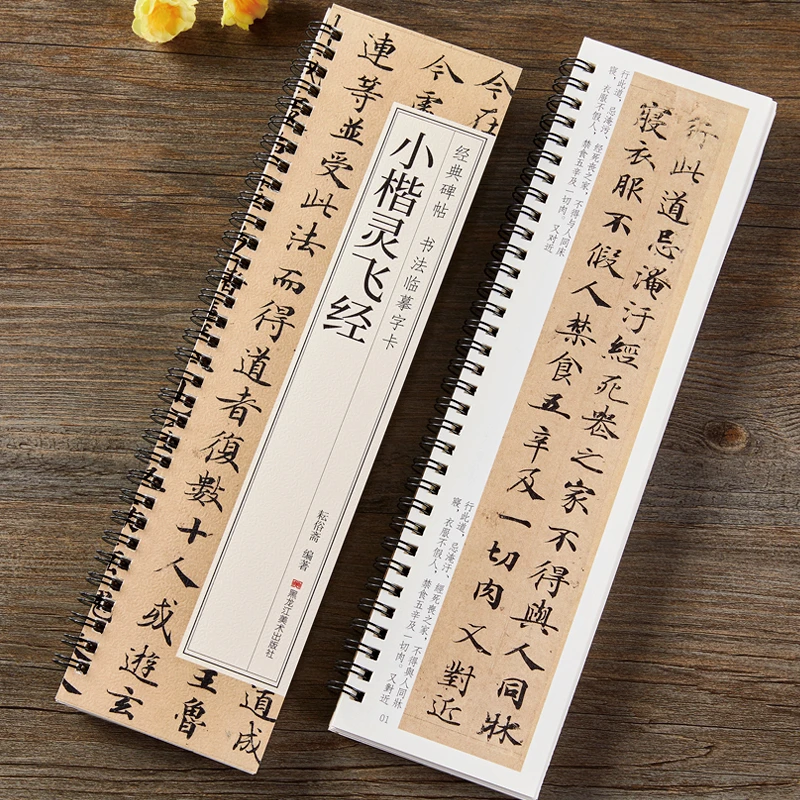 经典碑帖 书法临摹字卡
小楷灵飞经
耘俗斋 编著
黑龙江美术出版社
今在
道成
王魯
連等並受此法而得道者復數十人或遊玄
行此道，忌淹污、经死丧之家，不得与人同床
寝，衣服不假人，禁食五辛及一切肉。又对近
行此道忌淹汙經死喪之家不得與人同牀
寢衣服不假人禁食五辛及一切肉又對近
行此道，忌淹汙、經死喪之家，不得與人同牀
寢，衣服不假人，禁食五辛及一切肉。又對近
01